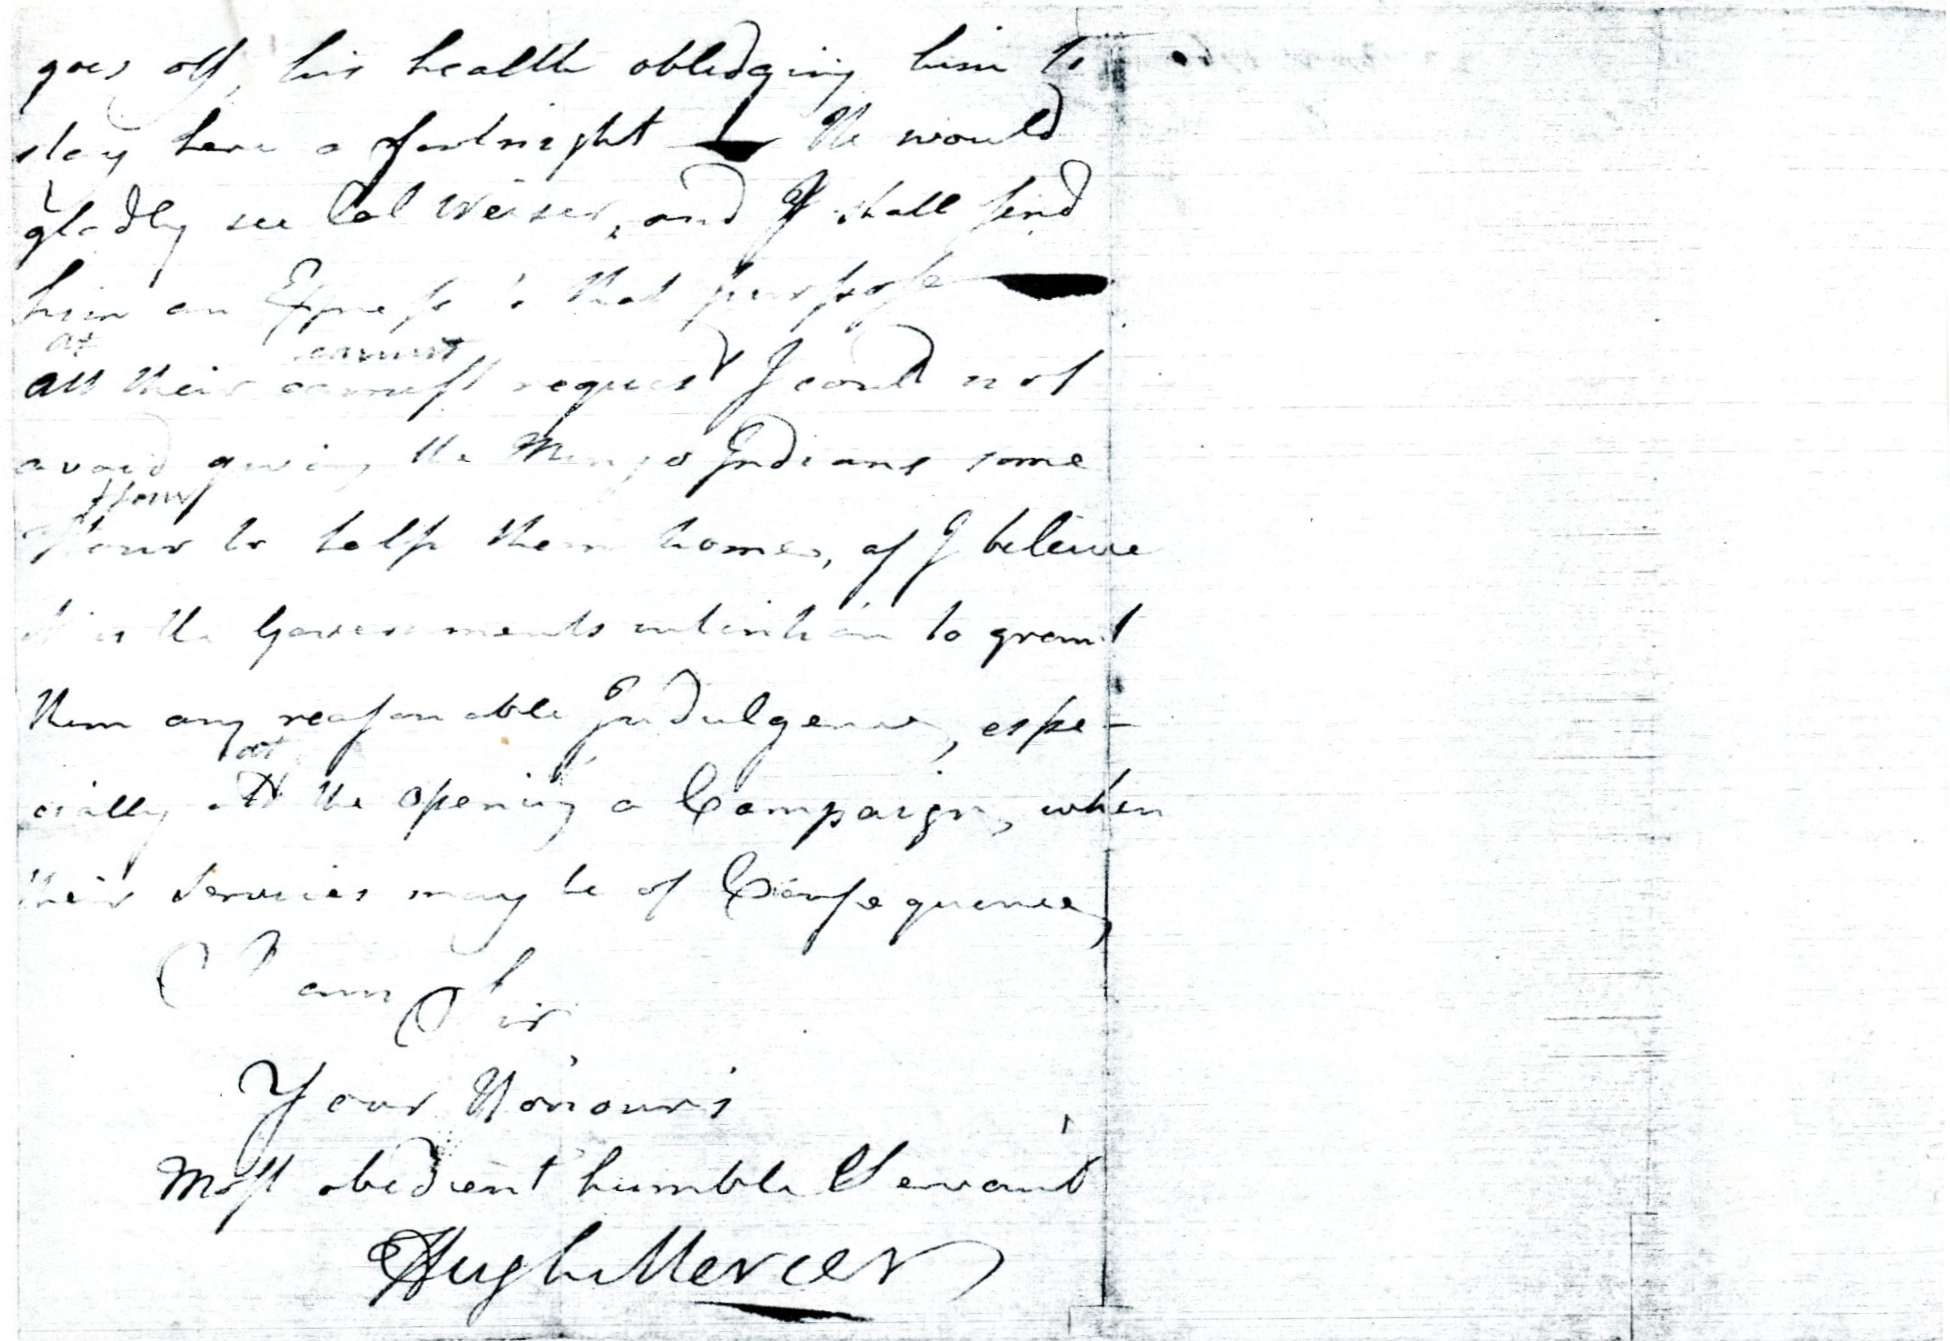 goes off, his health obledging him to
stay here a fortnight — He would
gladly see Col Weiser, and I shall send
him an Express to that purpose —
at earnest
att their earnest request I could not
avoid giving the Mingo Indians some
flour
flour to help them home, as I beleive
it is the Governments intention to grant
them any reasonable Indulgence, espe-
at
cially att the opening a Campaign, when
their Services may be of Consequence,
I am Sir
Your Honour's
Most obedient humble Servant
Hugh Mercer